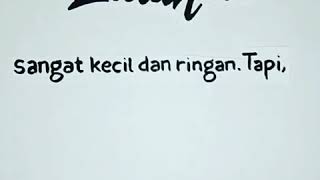 sangat kecil dan ringan. Tapi,